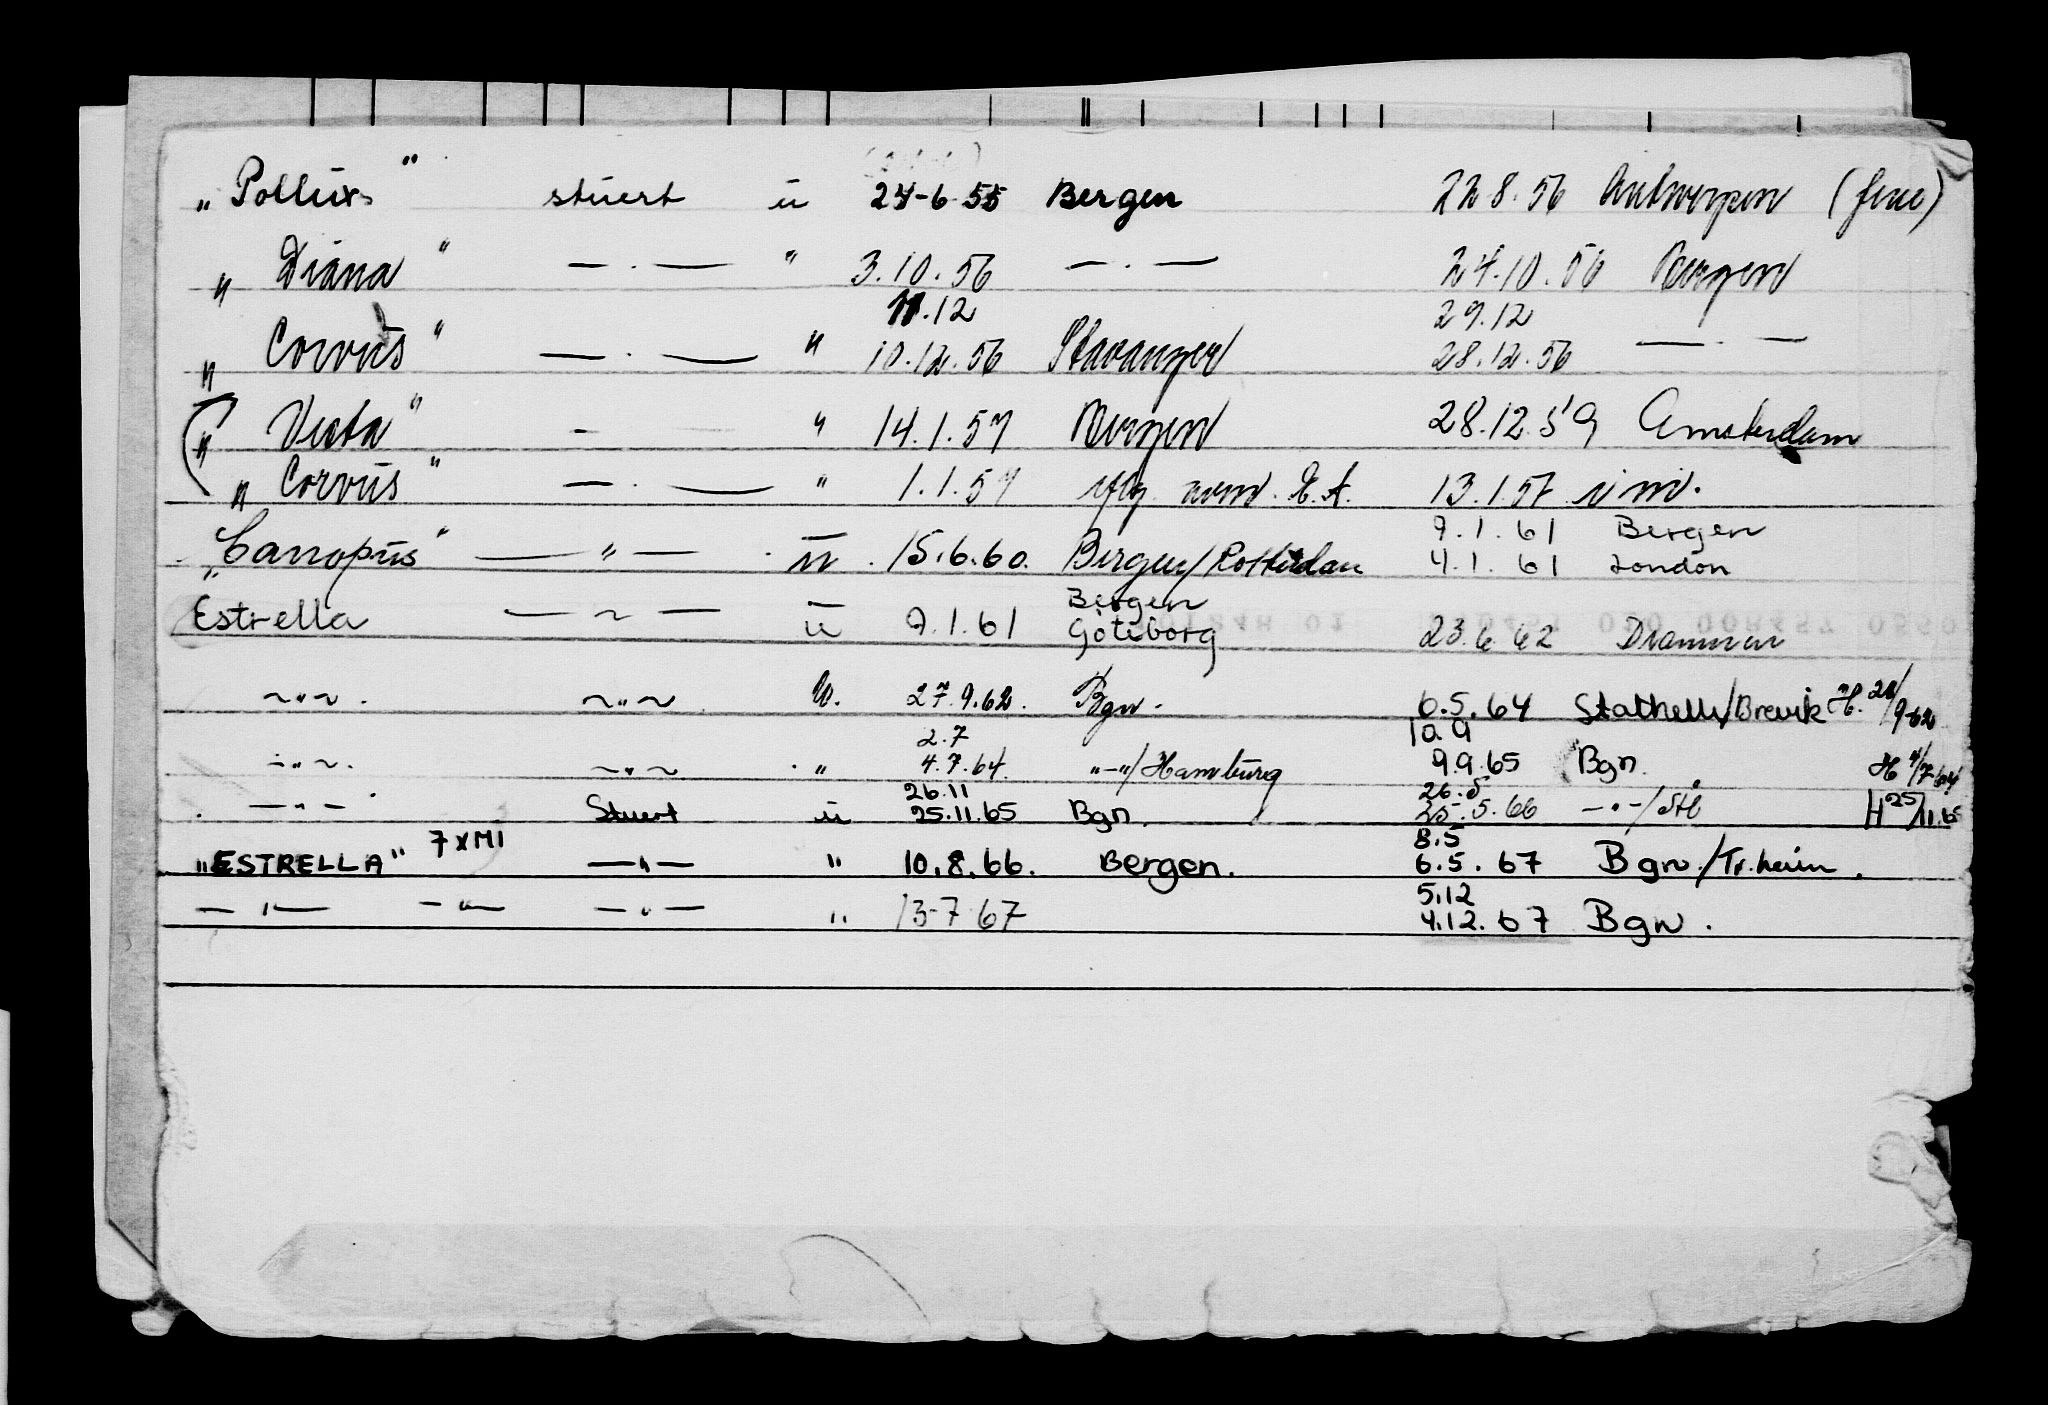 „Pollux" stuert u 24-6-55 Bergen 22.8.56 Antwerpen (ferie)
„Diana" — . — " 3.10.56 — . — 24.10.56 Bergen
11.12 29.12
„Corvus" — . — " 10.12.56 Stavanger 28.12.56 — . —
„Vesta" - " 14.1.57 Bergen 28.12.59 Amsterdam
„Corvus" — . — " 1.1.57 13.1.57
9.1.61 Bergen
„Canopus" — " — u 15.6.60. Bergen/Rotterdam 4.1.61 London
Bergen
Estrella — ~ — u 9.1.61 Göteborg 23.6.62 Drammen
~"~. ~"~ U. 27.9.62. Bgn. 6.5.64 Stathelle/Brevik H. 28/9-62
2.7 10.9
-"~. ~"~ . " 4.7.64. "-"/Hamburg 9.9.65 Bgn. H 4/7-64
26.11 26.5
—"— Stuert u 25.11.65 Bgn. 25.5.66 —"—/Stb H 25/11.65
8.5
„ESTRELLA" 7 x M1 —"— " 10.8.66. Bergen. 6.5.67 Bgn./Tr.heim.
5.12
—"— —"— —"— " 13-7-67 4.12.67 Bgn.